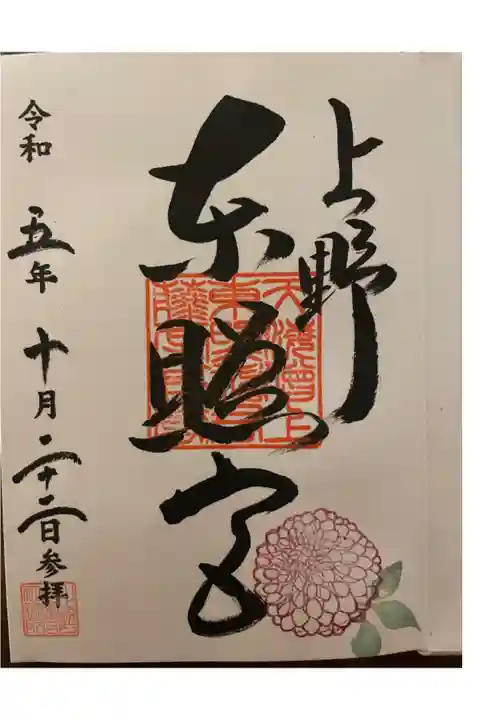 上野
東照宮
令和 五年 十月二十二日参拝